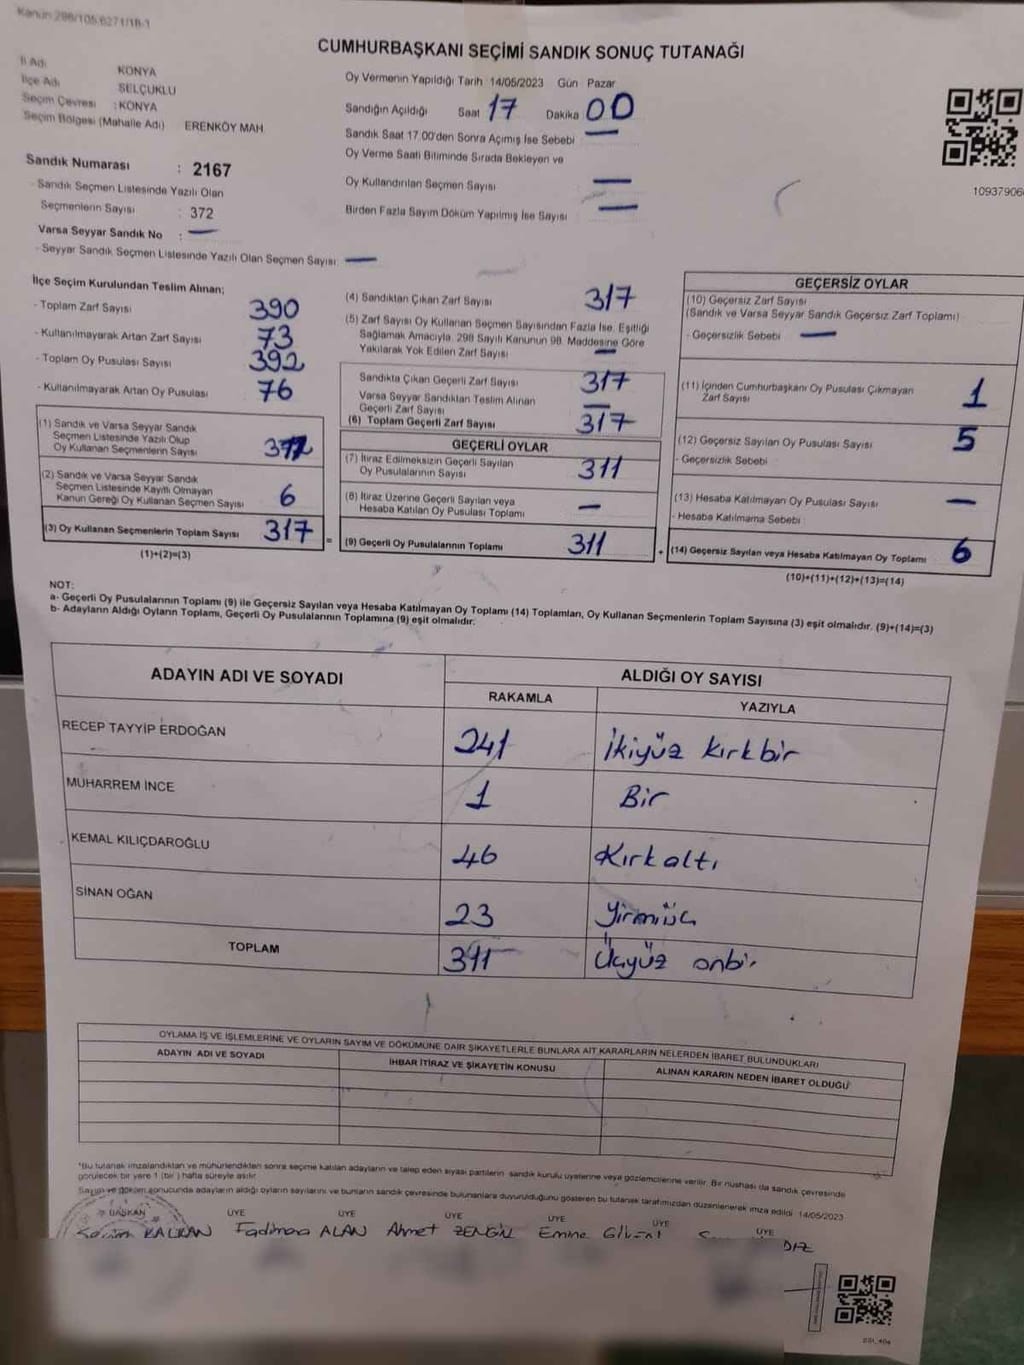 Kanun 298/105,6271/18-1
CUMHURBAŞKANI SEÇİMİ SANDIK SONUÇ TUTANAĞI
İl Adı KONYA
İlçe Adı SELÇUKLU
Seçim Çevresi : KONYA
Seçim Bölgesi (Mahalle Adı) ERENKÖY MAH.
Oy Vermenin Yapıldığı Tarih 14/05/2023 Gün Pazar
Sandığın Açıldığı Saat 17 Dakika 00
Sandık Saat 17.00'den Sonra Açımış İse Sebebi —
Oy Verme Saati Bitiminde Sırada Bekleyen ve
Oy Kullandırılan Seçmen Sayısı —
Birden Fazla Sayım Döküm Yapılmış İse Sayısı —
10937906
Sandık Numarası : 2167
- Sandık Seçmen Listesinde Yazılı Olan
Seçmenlerin Sayısı : 372
Varsa Seyyar Sandık No : —
- Seyyar Sandık Seçmen Listesinde Yazılı Olan Seçmen Sayısı: —
İlçe Seçim Kurulundan Teslim Alınan;
- Toplam Zarf Sayısı 390
- Kullanılmayarak Artan Zarf Sayısı 73
- Toplam Oy Pusulası Sayısı 392
- Kullanılmayarak Artan Oy Pusulası 76
(1) Sandık ve Varsa Seyyar Sandık
Seçmen Listesinde Yazılı Olup
Oy Kullanan Seçmenlerin Sayısı
(2) Sandık ve Varsa Seyyar Sandık
Seçmen Listesinde Kayıtlı Olmayan
Kanun Gereği Oy Kullanan Seçmen Sayısı 6
(3) Oy Kullanan Seçmenlerin Toplam Sayısı 317
(1)+(2)=(3)
=
(4) Sandıktan Çıkan Zarf Sayısı 317
(5) Zarf Sayısı Oy Kullanan Seçmen Sayısından Fazla İse, Eşitliği
Sağlamak Amacıyla, 298 Sayılı Kanunun 98. Maddesine Göre
Yakılarak Yok Edilen Zarf Sayısı —
Sandıkta Çıkan Geçerli Zarf Sayısı 317
Varsa Seyyar Sandıktan Teslim Alınan
Geçerli Zarf Sayısı —
(6) Toplam Geçerli Zarf Sayısı 317
GEÇERLİ OYLAR
(7) İtiraz Edilmeksizin Geçerli Sayılan
Oy Pusulalarının Sayısı 311
(8) İtiraz Üzerine Geçerli Sayılan veya
Hesaba Katılan Oy Pusulası Toplamı —
(9) Geçerli Oy Pusulalarının Toplamı 311
+
GEÇERSİZ OYLAR
(10) Geçersiz Zarf Sayısı
(Sandık ve Varsa Seyyar Sandık Geçersiz Zarf Toplamı)
- Geçersizlik Sebebi —
(11) İçinden Cumhurbaşkanı Oy Pusulası Çıkmayan
Zarf Sayısı 1
(12) Geçersiz Sayılan Oy Pusulası Sayısı 5
- Geçersizlik Sebebi
(13) Hesaba Katılmayan Oy Pusulası Sayısı —
- Hesaba Katılmama Sebebi
(14) Geçersiz Sayılan veya Hesaba Katılmayan Oy Toplamı 6
(10)+(11)+(12)+(13)=(14)
NOT:
a- Geçerli Oy Pusulalarının Toplamı (9) ile Geçersiz Sayılan veya Hesaba Katılmayan Oy Toplamı (14) Toplamları, Oy Kullanan Seçmenlerin Toplam Sayısına (3) eşit olmalıdır. (9)+(14)=(3)
b- Adayların Aldığı Oyların Toplamı, Geçerli Oy Pusulalarının Toplamına (9) eşit olmalıdır.
ADAYIN ADI VE SOYADI ALDIĞI OY SAYISI
RAKAMLA YAZIYLA
RECEP TAYYİP ERDOĞAN 241 İkiyüz kırkbir
MUHARREM İNCE 1 Bir
KEMAL KILIÇDAROĞLU 46 Kırkaltı
SİNAN OĞAN 23 Yirmiüç
TOPLAM 311 Üçyüz onbir
OYLAMA İŞ VE İŞLEMLERİNE VE OYLARIN SAYIM VE DÖKÜMÜNE DAİR ŞİKAYETLERLE BUNLARA AİT KARARLARIN NELERDEN İBARET BULUNDUKLARI
ADAYIN ADI VE SOYADI İHBAR İTİRAZ VE ŞİKAYETİN KONUSU ALINAN KARARIN NEDEN İBARET OLDUĞU
*Bu tutanak imzalandıktan ve mühürlendikten sonra seçime katılan adayların ve talep eden siyasi partilerin sandık kurulu üyelerine veya gözlemcilerine verilir. Bir nüshası da sandık çevresinde
görülecek bir yere 1 (bir) hafta süreyle asılır.
Sayım ve döküm sonucunda adayların aldığı oyların sayılarını ve bunların sandık çevresinde bulunanlara duyurulduğunu gösteren bu tutanak tarafımızdan düzenlenerek imza edildi. 14/05/2023
BAŞKAN ÜYE ÜYE ÜYE ÜYE ÜYE ÜYE
KALKAN Fadimana ALAN Ahmet ZENGİN Emine